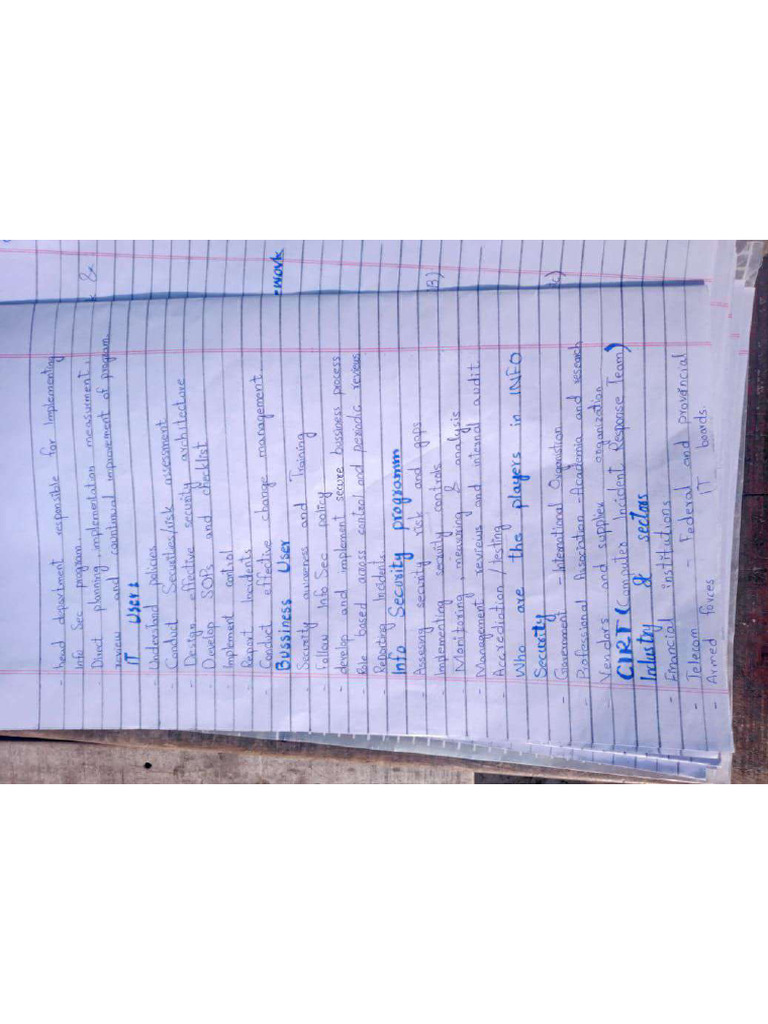 - head department responsible for Implementing
Info Sec program.
- Direct planning, implementation measurment,
review and countinual improvement of program.
IT Users
- Understand policies
- Conduct Securities/risk assesment
- Design effective security architecture
- Develop SOPs and checklist
- Implement control
- Report Incidents
- Conduct effective change management
Bussiness User
- Security awarness and Training
- Follow Info Sec policy
- develop and implement secure bussiness process
- Role based access control and periodic reviews
- Reporting Incidents
Info Security programm
- Assessing security risk and gaps
- Implementing security controls
- Monitoring, measuring & analysis
- Management reviews and internal audit
- Accrediation/testing
Who are the players in INFO
Security
- Government - International Organistion
- Professional Association - Academia and research
- Vendors and supplier organization
CIRT (Computer Incident Response Team)
Industry & sectors
- Financial institutions
- Telecom - Federal and provincial
- Armed forces IT boards.
&
-work
B)
c)